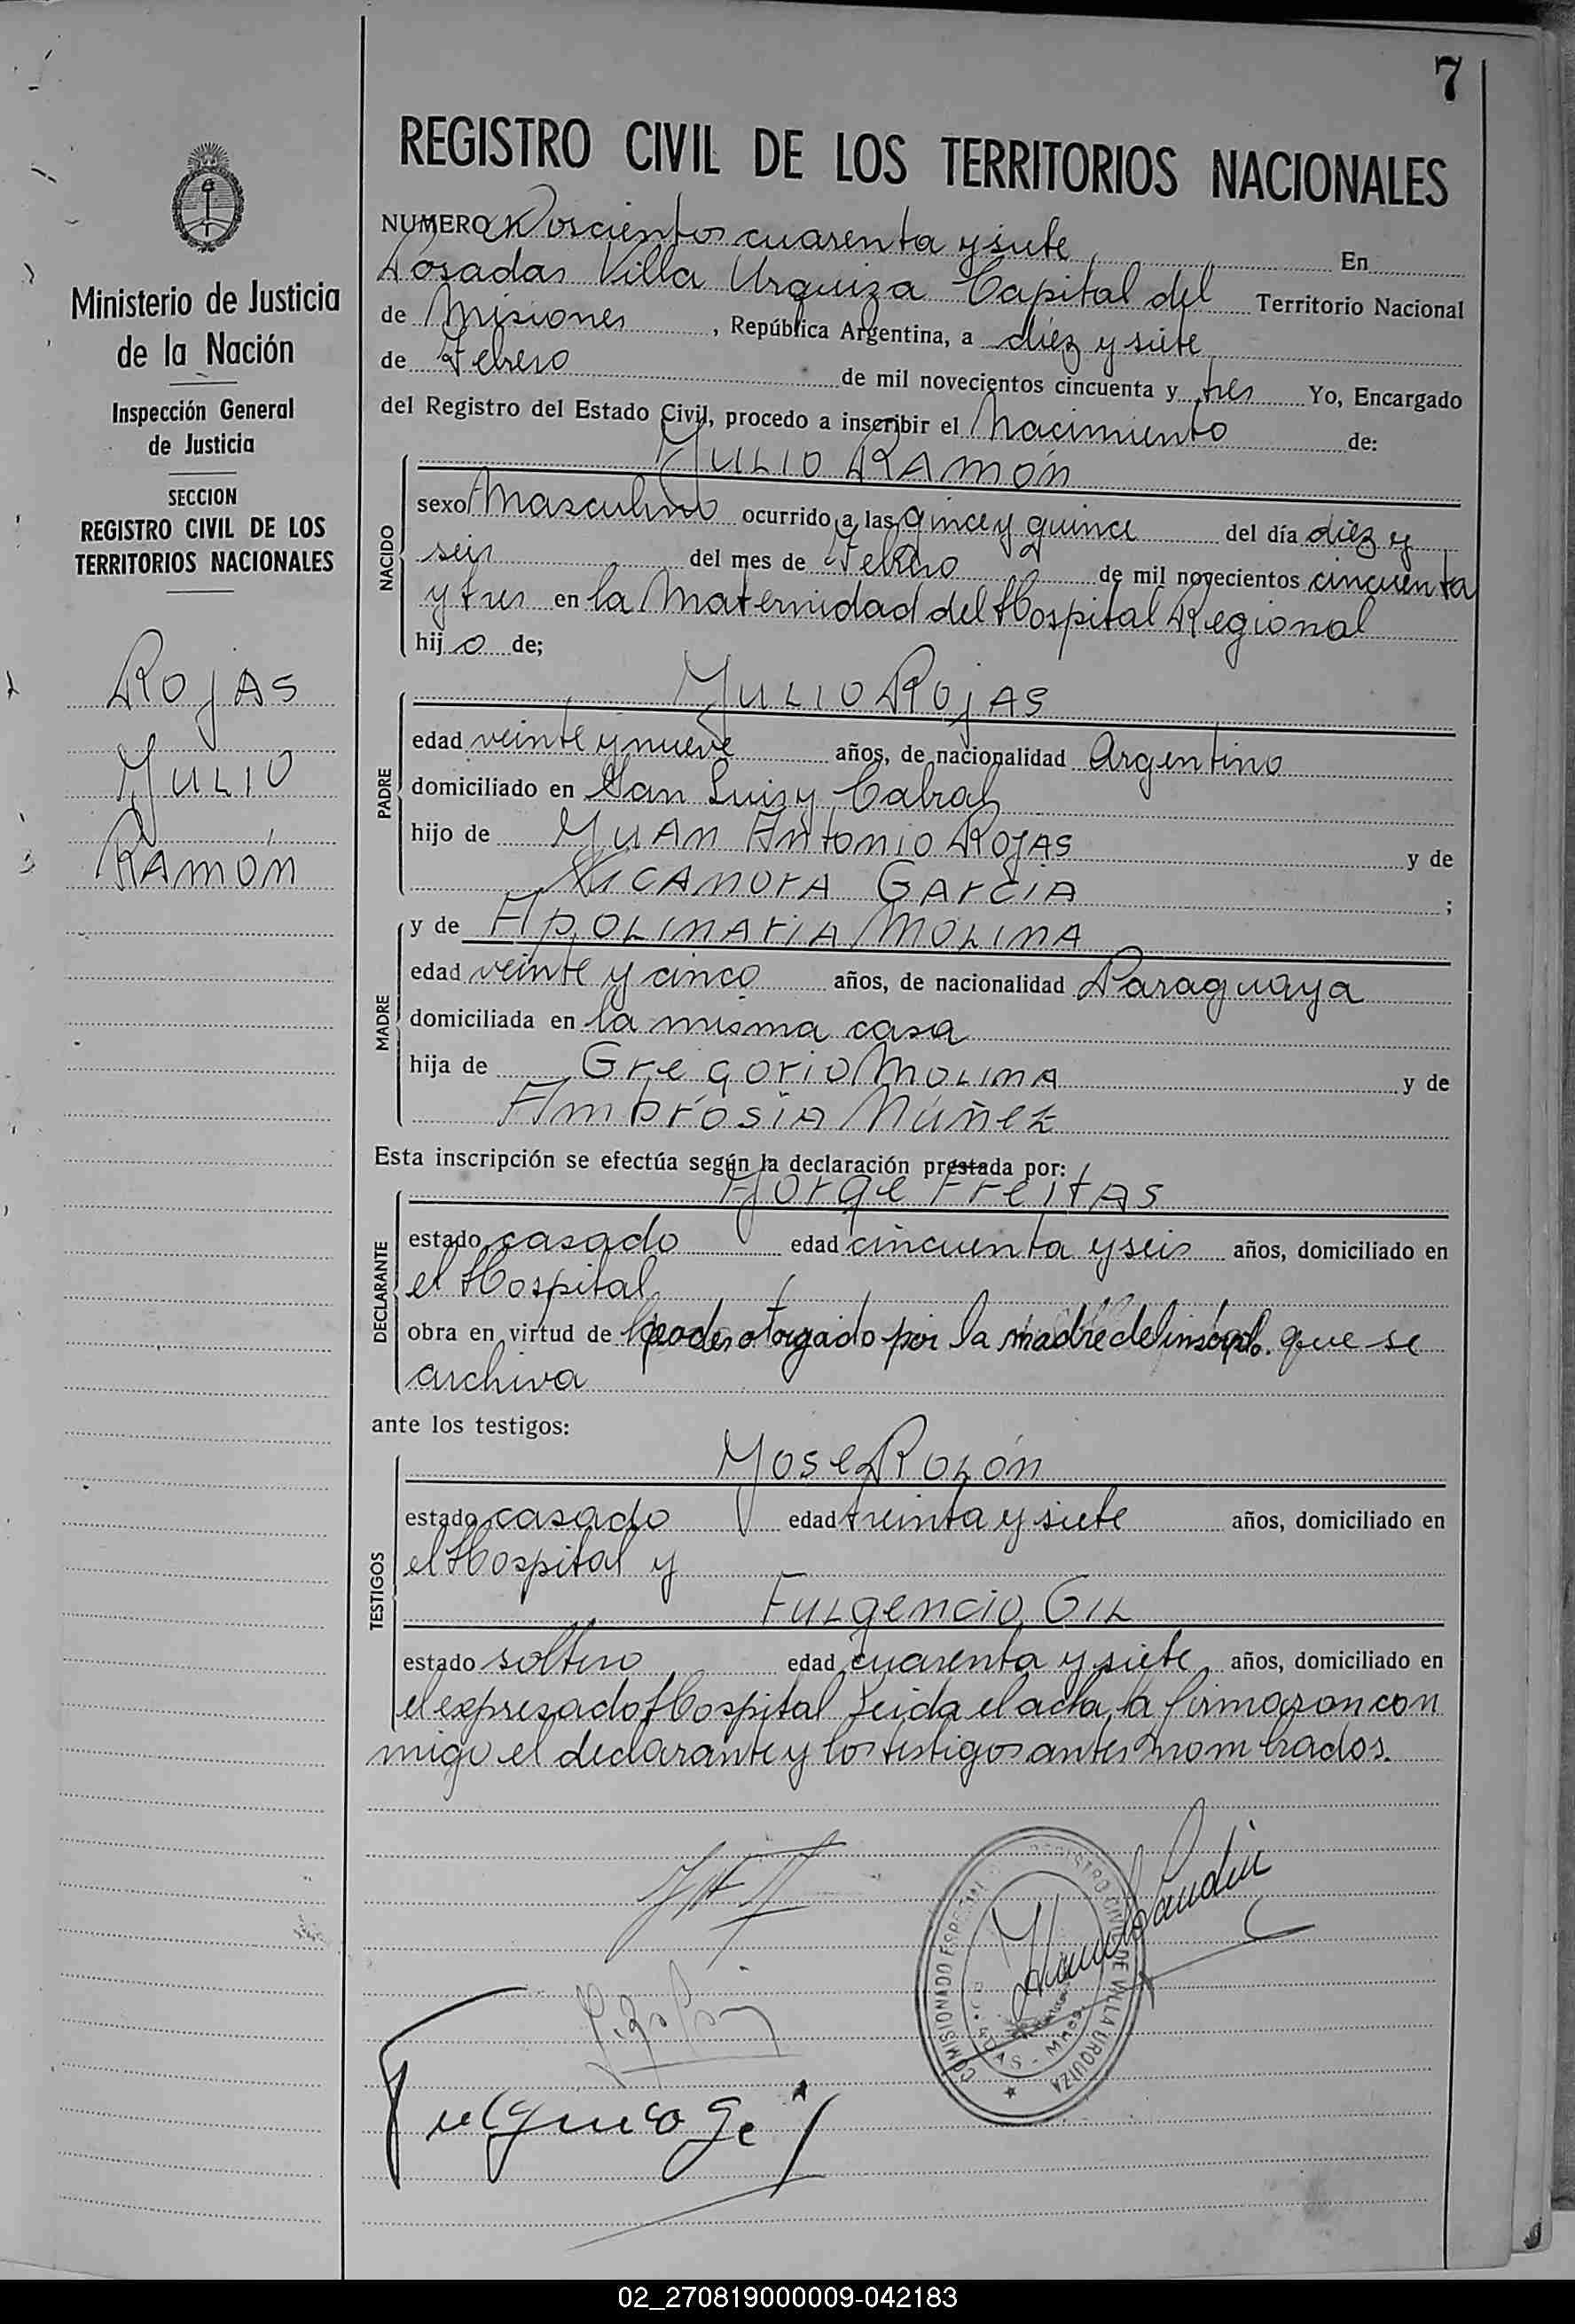 7
REGISTRO CIVIL DE LOS TERRITORIOS NACIONALES
Ministerio de Justicia
de la Nación
Inspección General
de Justicia
SECCION
REGISTRO CIVIL DE LOS
TERRITORIOS NACIONALES
ROJAS
JULIO
RAMÓN
NUMERO Doscientos cuarenta y siete En
Posadas Villa Urquiza Capital del Territorio Nacional
de Misiones, República Argentina, a diez y siete
de Febrero de mil novecientos cincuenta y tres Yo, Encargado
del Registro del Estado Civil, procedo a inscribir el Nacimiento de:
NACIDO
JULIO RAMÓN
sexo Masculino ocurrido a las quince y quince del día diez y
seis del mes de Febrero de mil novecientos cincuenta
y tres en la Maternidad del Hospital Regional
hijo de;
PADRE
JULIO ROJAS
edad veinte y nueve años, de nacionalidad Argentino
domiciliado en San Luis y Cabral
hijo de JUAN ANTONIO ROJAS y de
NICANORA GARCIA ;
MADRE
y de APOLINARIA MOLINA
edad veinte y cinco años, de nacionalidad Paraguaya
domiciliada en la misma casa
hija de GREGORIO MOLINA y de
AMBROSIA NÚÑEZ
Esta inscripción se efectúa según la declaración prestada por:
DECLARANTE
JORGE FREITAS
estado casado edad cincuenta y seis años, domiciliado en
el Hospital
obra en virtud de poder otorgado por la madre del inscripto. que se
archiva
ante los testigos:
TESTIGOS
JOSE ROLÓN
estado casado edad treinta y siete años, domiciliado en
el Hospital y
FULGENCIO GIL
estado soltero edad cuarenta y siete años, domiciliado en
el expresado Hospital Leida el acta, la firmaron con
migo el declarante y los testigos antes nombrados.
COMISIONADO ESPECIAL REGISTRO CIVIL DE VILLA URQUIZA
Fulgencio Gil
02_270819000009-042183